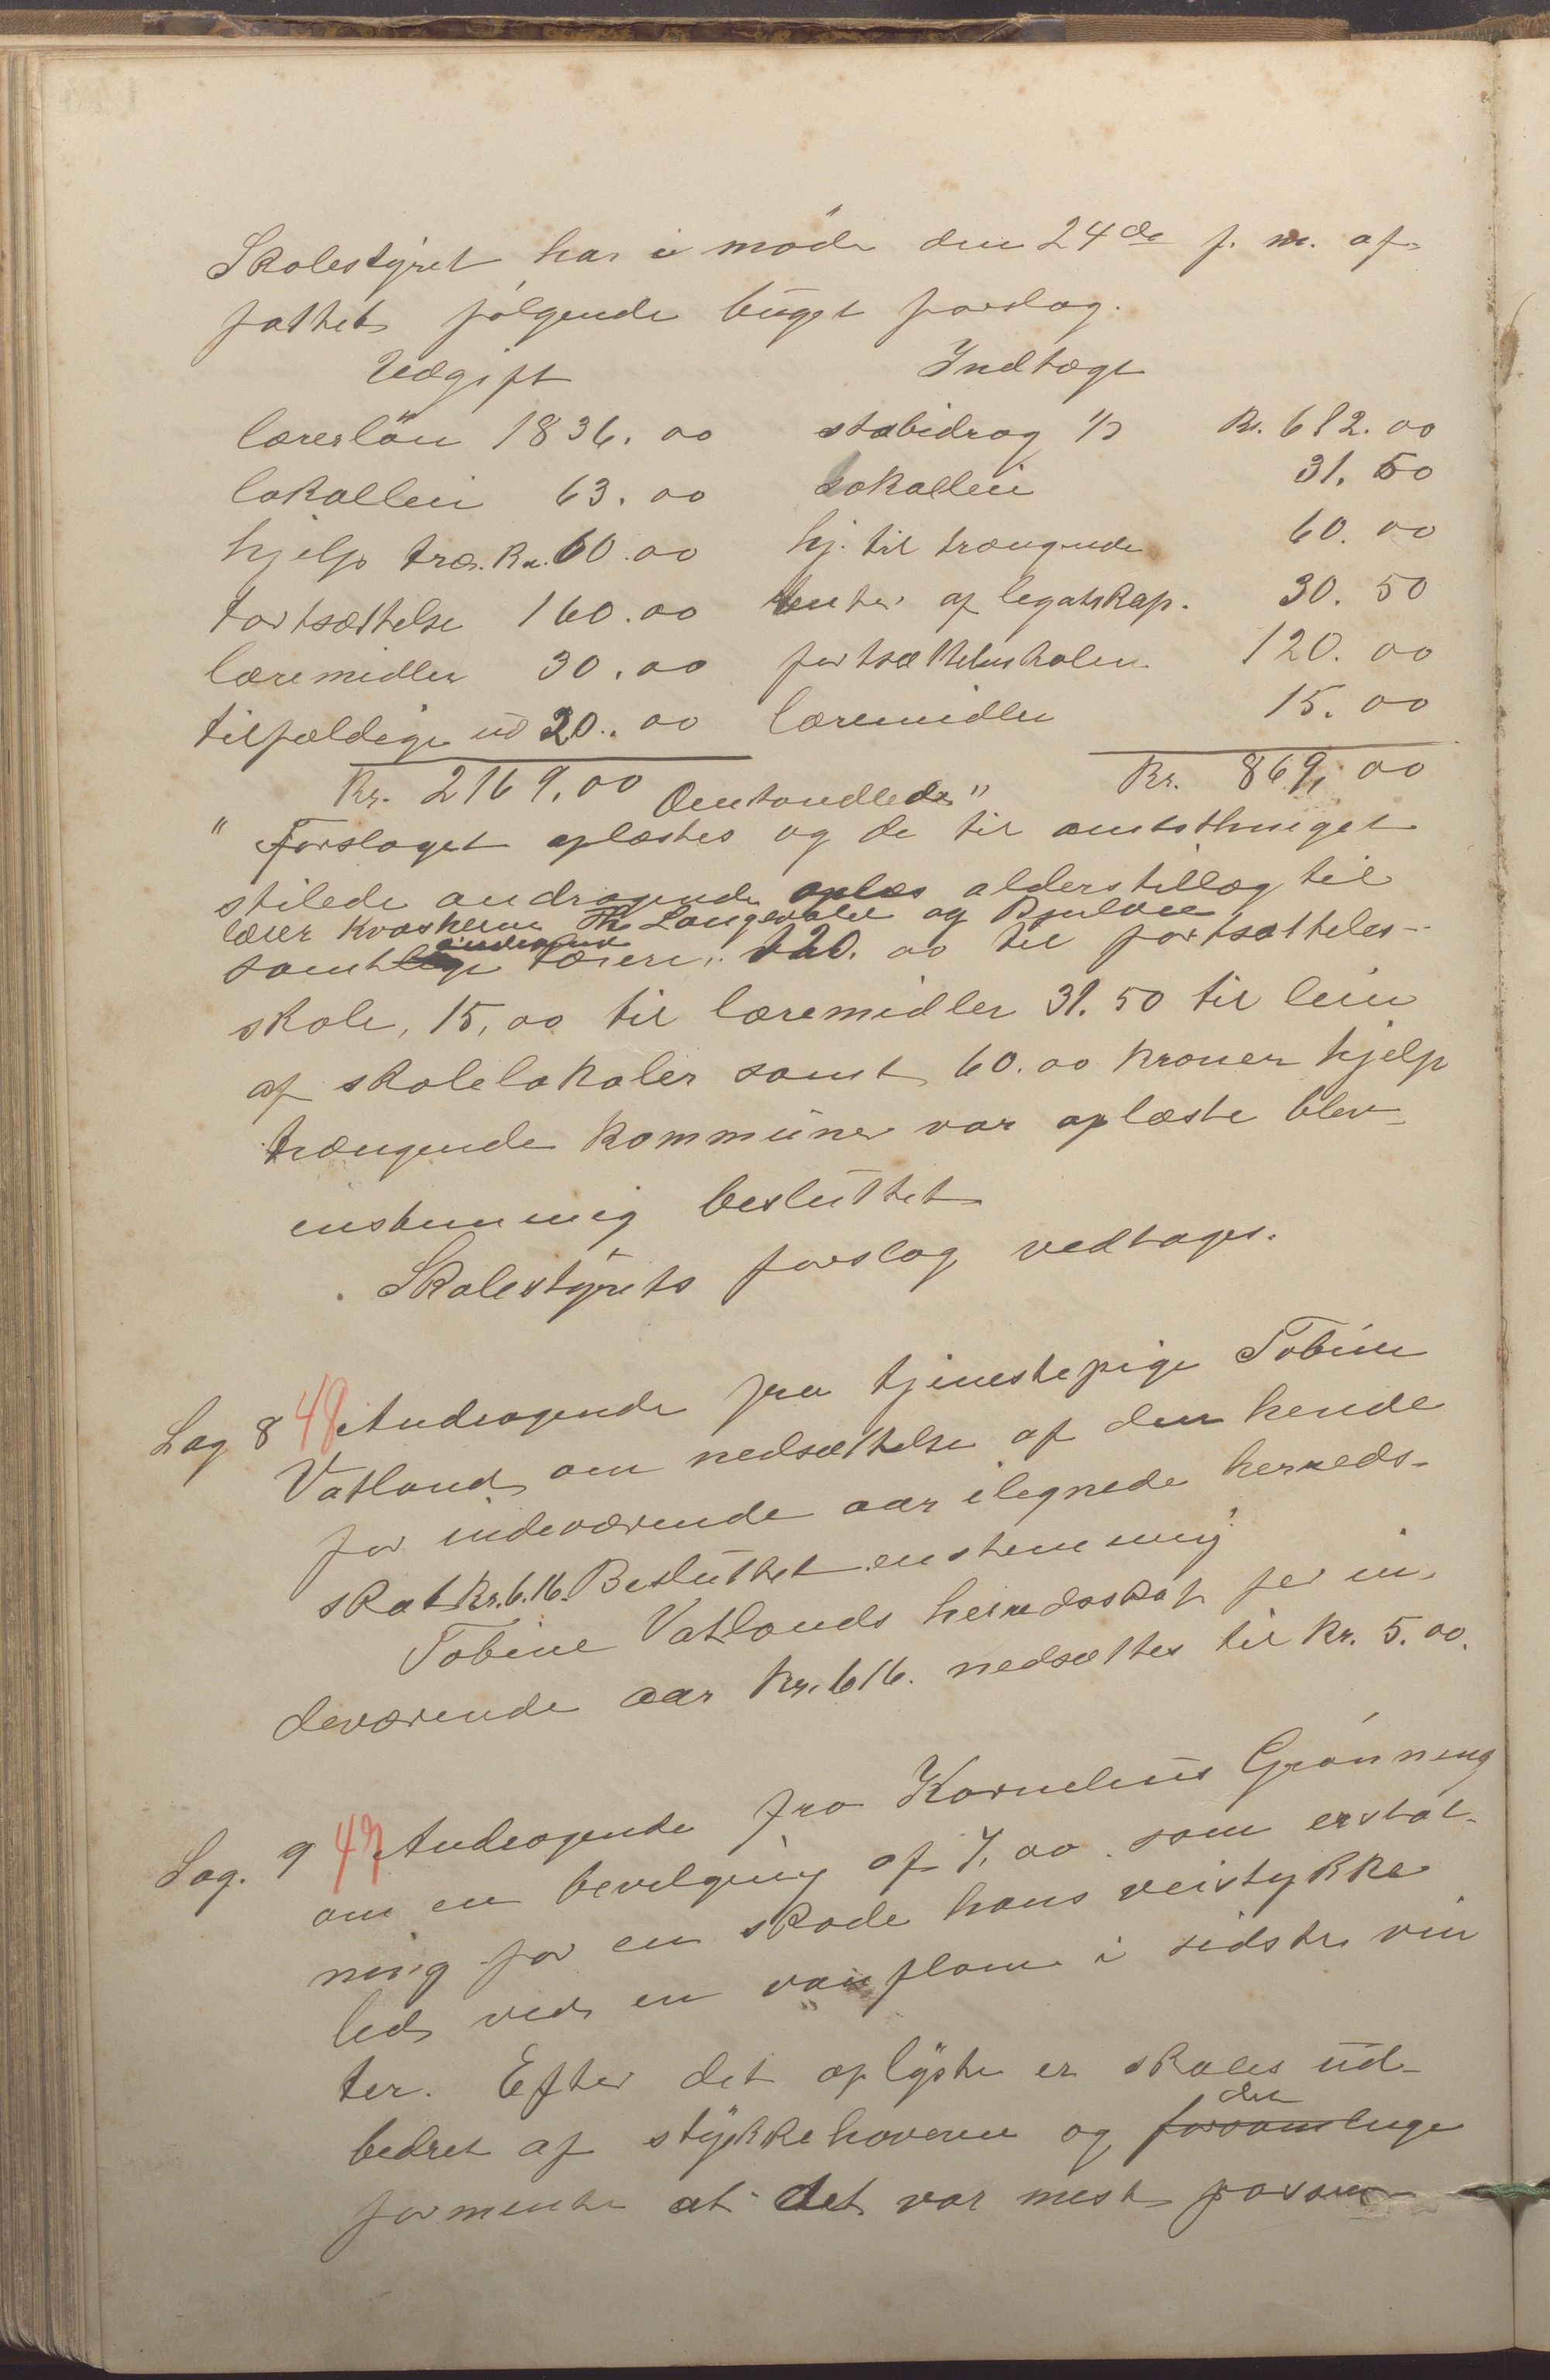 Skolestyret har i møde den 24de f. m. af-
fattet følgende buget forslag.
Udgift Indtægt
lærerløn 1836.00 stabidrag 1/3 Kr. 612.00
lokalleie 63.00 Lokalleie 31.50
hjelp træ. K. 60.00 hj. til trængende 60.00
fortsættelse 160.00 renter af legatskap. 30.50
læremidler 30.00 fortsættelsesskolen 120.00
tilfældige ud 20.00 læremidler 15.00
Kr. 2169,00 Omhandlede" Kr. 869,00
" Forslaget oplæstes og de til amtsthinget
stilede andragende oplæs alderstillæg til
lærer Kvasheim Th Langevald og
samtlige lærere. 120.00 til fortsættelses-
skole, 15,00 til læremidler 31.50 til leie
af skolelokaler samt 60.00 kroner hjelp
trængende kommuner var oplæste blev
enstemmig besluttet
Skolestyrets forslag vedtages.
Sag 8 48 Andragende fra tjenestepige Tobine
Vatland om nedsættelse af den hende
for indeværende aar ilignede herreds-
skat Kr. 6.16. Besluttet enstemmig
Tobine Vatlands herredsskat for in-
deværende aar Kr. 6 16. nedsættes til Kr. 5.00.
Sag. 9 47 Andragende fra Kornelius Grønning
om en bevilgning af 7,00 som erstat-
ning for en skade hans veistykke
led ved en vanflom i sidste vin
ter. Efter det oplyste er skades ud-
bedret af stykkehaveren og det forsamlinge
formente at det var mest forsom-